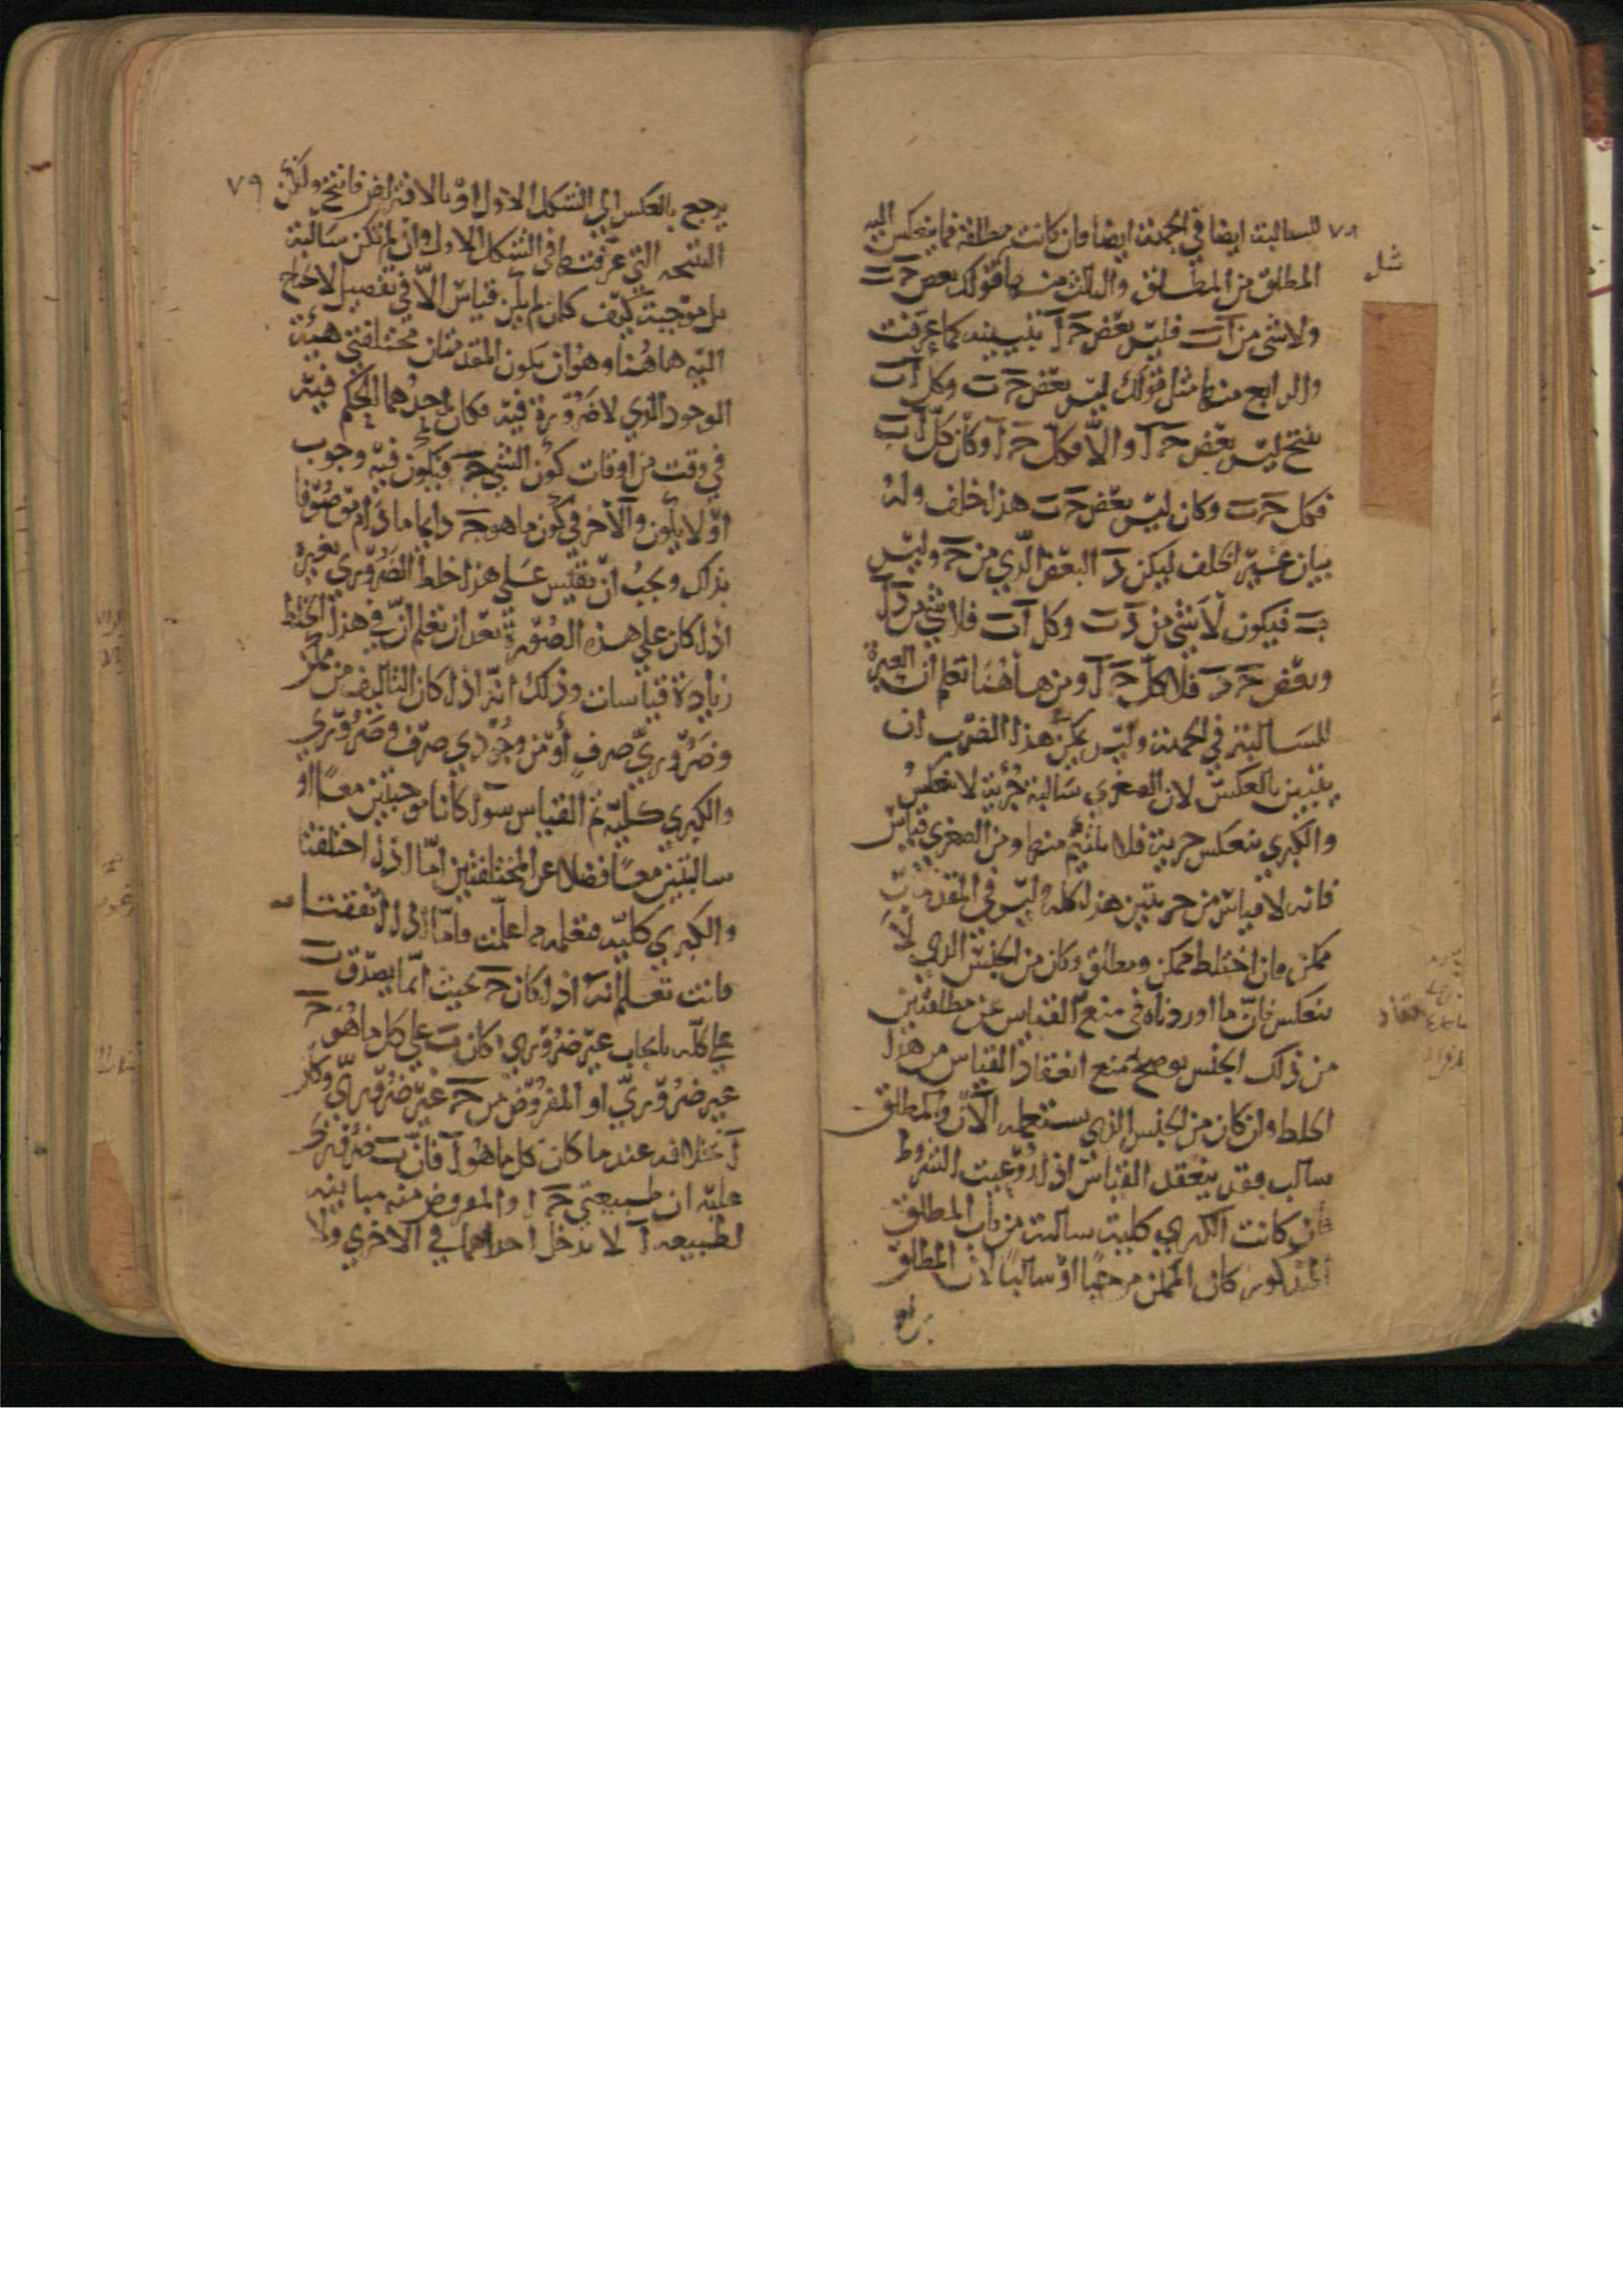 ٧٨
للسالبة ايضا في الجهة ايضا وان كانت مطلقة فما ينعكس اليه
المطلق من المطلق والثالث منها قولك بعض جـ ب
ولا شي من آ ب فليس بعض جـ آ يتبين بينه كما عرفت
والرابع منها مثل قولك ليس بعض جـ ب وكل آ ب
ينتج ليس بعض جـ آ والا فكل جـ آ وكان كل آ ب
فكل جـ ب وكان ليس بعض جـ ب هذا خلف وله
بيان غير الخلف ليكن د البعض الذي من جـ وليس
ب فيكون لا شي من د ب وكل آ ب فلا شي من د آ
وبعض جـ د فلا كل جـ آ ومن هاهنا تعلم ان العبرة
للسالبة في الجهة وليس يمكن هذا الضرب ان
يتبين بالعكس لان الصغري سالبة جزئية لا تنعكس
والكبري تنعكس جزية فلا يلتئم منها ومن الصغري قياس
فانه لا قياس من جزيتين هذا كله وليس في المقدمات
ممكن فان اختلط ممكن ومطلق وكان من الجنس الذي لا
ينعكس فان ما اوردناه في منع القياس عن مطلقتين
من ذلك الجنس يوضح منع انعقاد القياس من هذا
الخلط وان كان من الجنس الذي يستعمله الآن والمطلق
سالب فقد ينعقد القياس اذا روعيت الشروط
فان كانت الكبري كلية سالبة من باب المطلق
المذكور كان الممكن موجبا او سالبا لان المطلق
٧٩
يرجع بالعكس الي الشكل الاول او بالافتراض فانتج ولكن
النتيجه التي عرفتها في الشكل الاول وان لم تكن سالبة
بل موجبة كيف كان لم يكن قياس الا في تفصيل لا يحتاج
اليه هاهنا وهو ان يكون المقدمتان مختلفتي هيئة
الوجود الذي لا ضرورة فيه فكان احدهما الحكم فيه
في وقت من اوقات كون الشي جـ فيكون فيه وجوب
او لا يكون والآخر في كون ما هو جـ دايما ما دام موصوفا
بذاك ويجب ان تقيس علي هذا خلط الضروري بغيره
اذا كان علي هذه الصورة بعد ان تعلم ان في هذا الخلط
زيادة قياسات وذلك انه اذا كان التاليف من ممكن
وضروري صرف أو من وجودي صرف وضروري
والكبري كلية تم القياس سوا كانا موجبتين معا او
سالبتين معا فضلا عن المختلفتين اما اذا اختلفتا
والكبري كلية فتعلمه مما علمت واما اذا اتفقتا
فانت تعلم انه اذا كان جـ بحيث انما يصدق ب
علي كله بايجاب غير ضروري كان ب علي كل ما هو جـ
غير ضروري او المفروض من جـ غير ضروري وكان
آ بخلافه عندما كان كل ما هو آ فان ب ضروري
عليه ان طبيعتي جـ آ والمفروض منه مباينه
لطبيعه آ لا تدخل احداهما في الاخري ولا